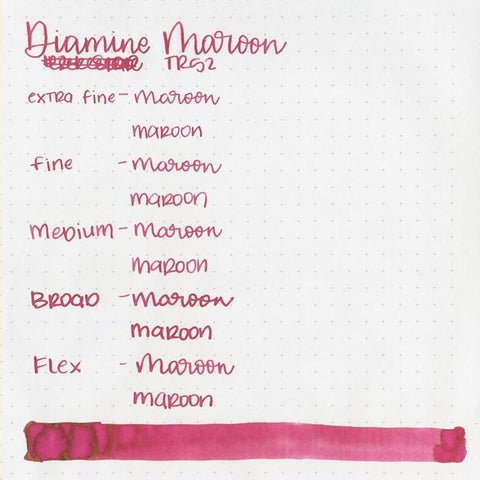 Diamine Maroon
TR52
extra fine - maroon
maroon
fine - maroon
maroon
Medium - maroon
maroon
Broad - maroon
maroon
Flex - maroon
maroon